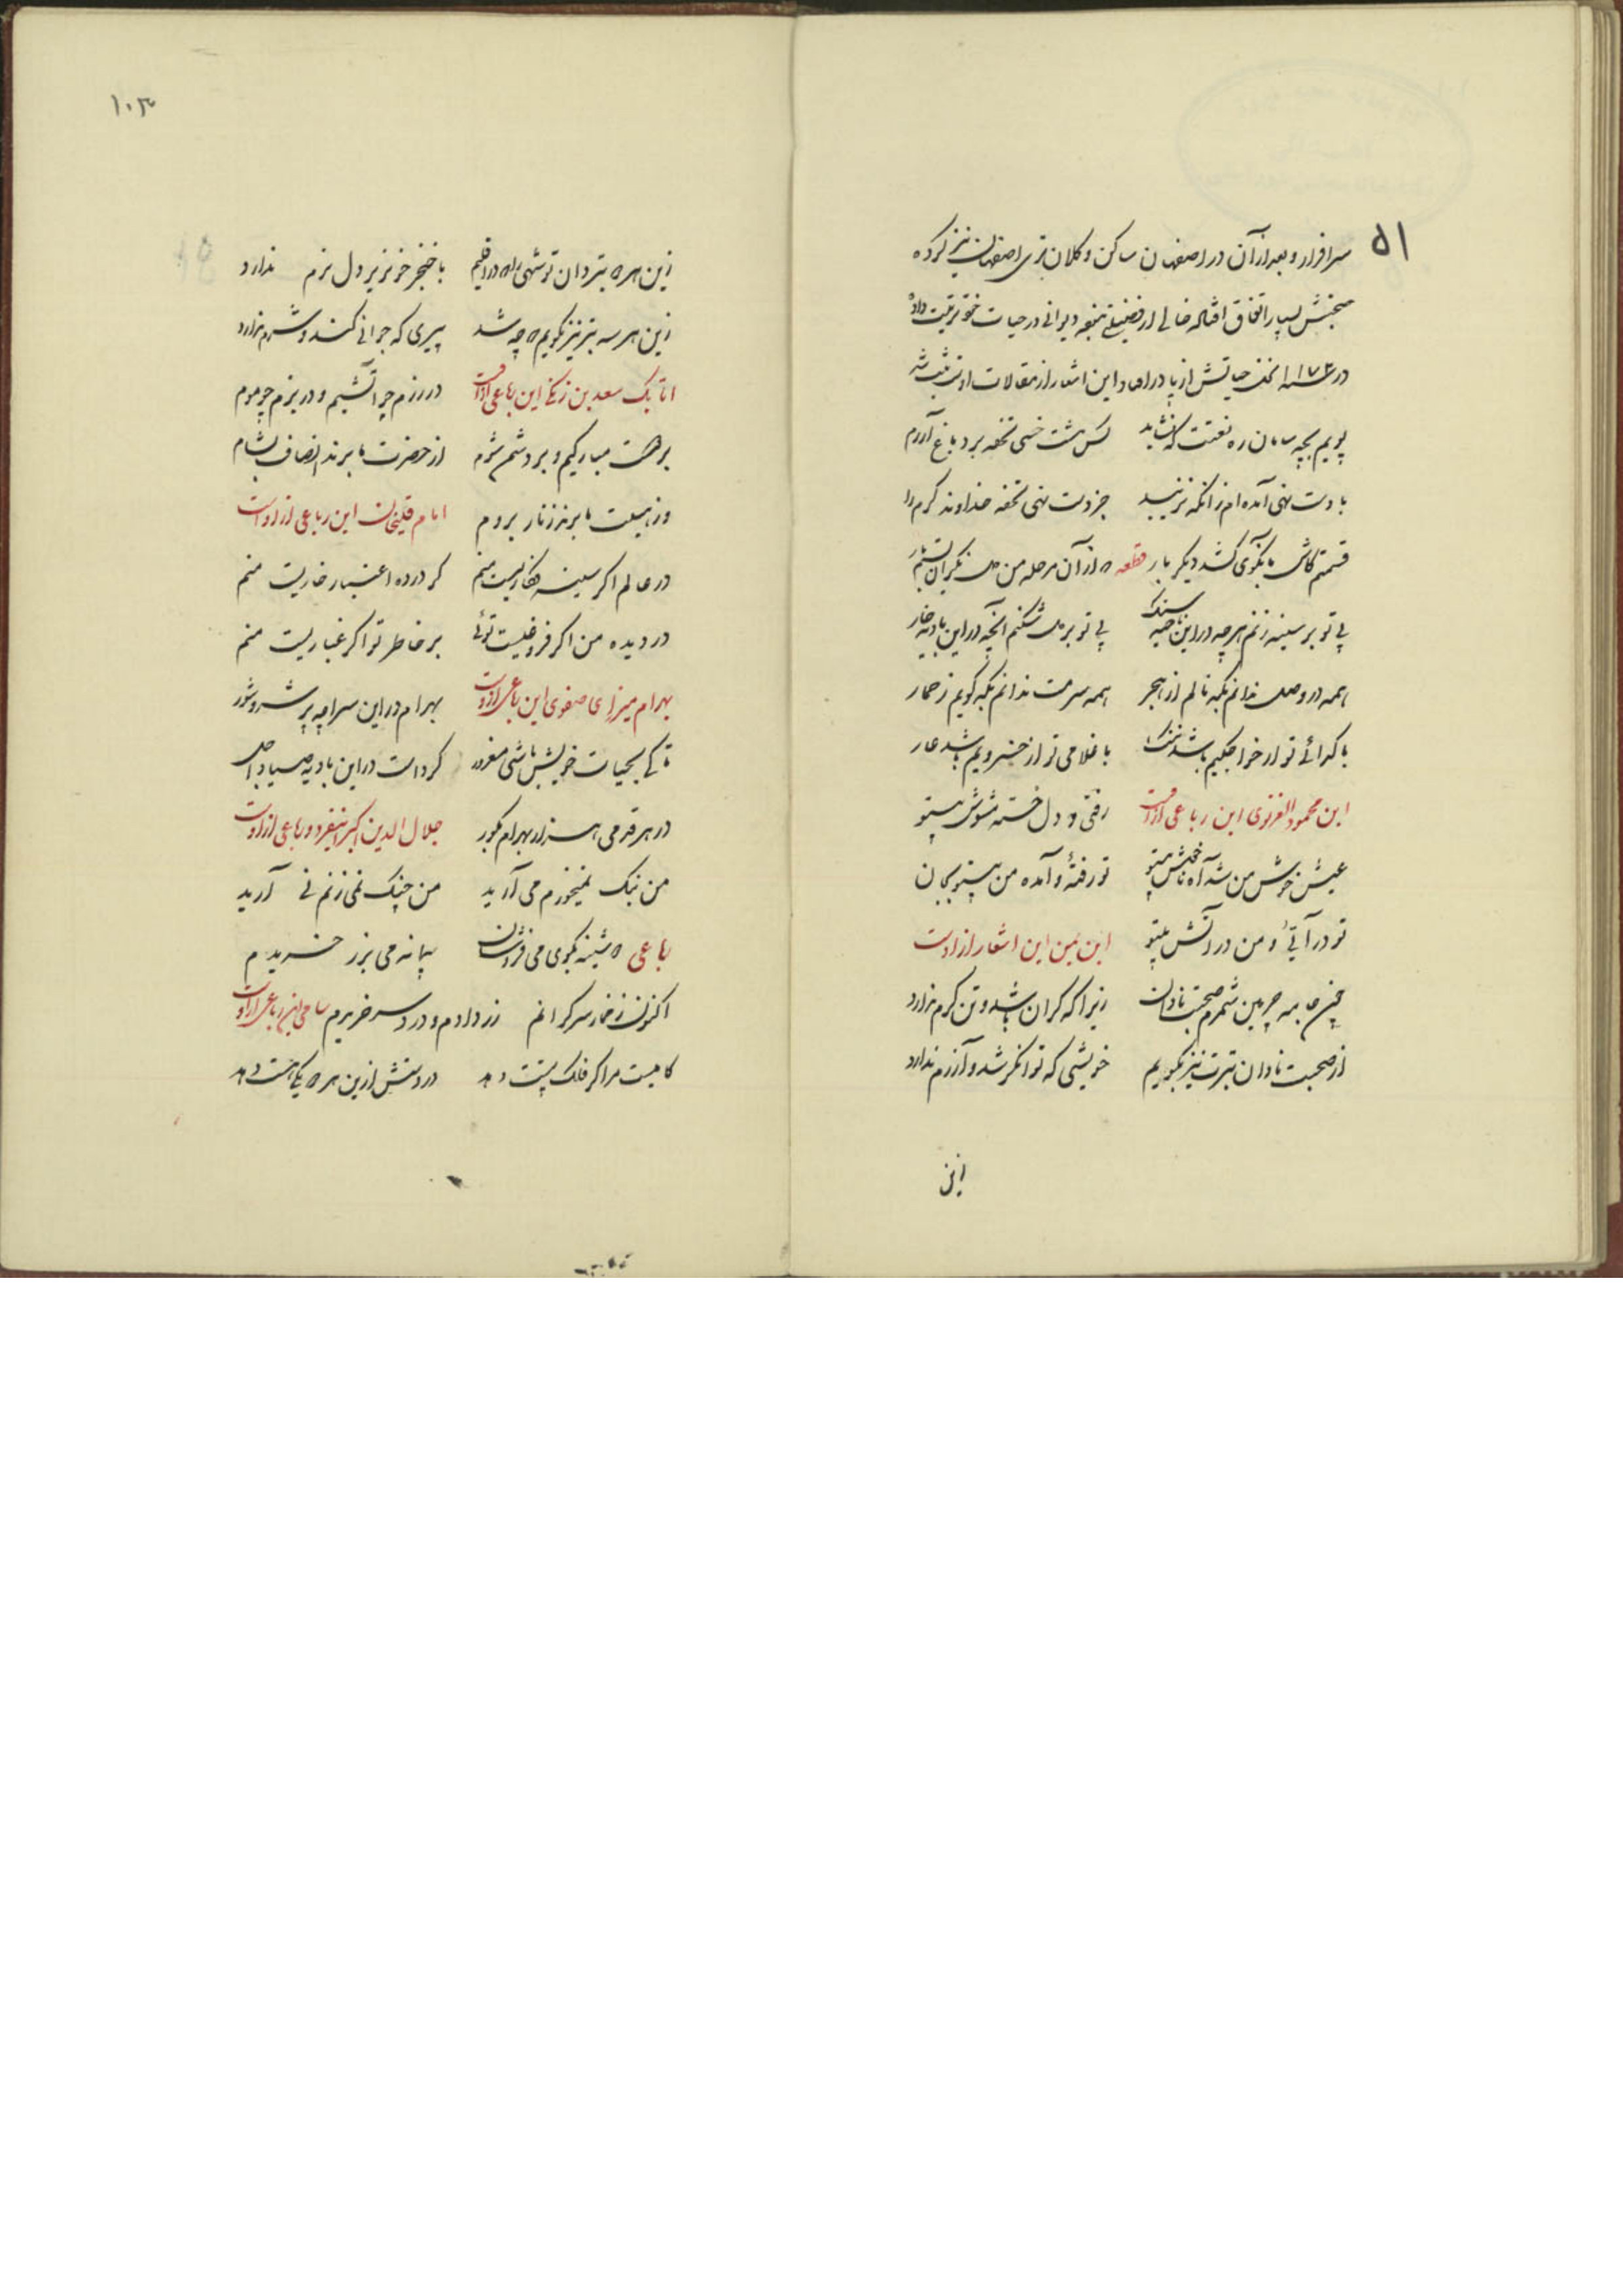 ۵۱
سرافراز و بعد از آن در اصفهان ساکن و کلان تری اصفهان نیز کرده
سخنش بسیار اتفاق افتاده خالی از فضیلتی نبوده دیوانی در حیات خود ترتیب داده
در سنه ۱۱۷۳ نخل حیاتش از پا درامد و این اشعار از مقالات او ثبت شد
پویم بچه سامان ره نعتت که نشاید کس مشت خسی تحفه برد باغ آرم
با دست تهی آمده ام زانکه نزیبد جز دست تهی تحفه خداوند کرم را
قسمتم کاش بانکوی کشد دیگر بار قطعه که از آن مرحله من دل نگران بستم بار
بی تو بر سینه زنم هرچه در این ناحیه سنگ بی تو بر دل شکنم آنچه در این بادیه خار
همه در وصل ندانم بکه نالم از هجر همه سرمست ندانم بکه گویم ز خمار
با گدائی تو از خواجگیم باشد ننگ با غلامی تو از خسرویم باشد عار
ابن محمود الغزنوی این رباعی از اوست رفتی و دل خسته مشوش بیتو
عیش خوش من شد آه ناخوش بیتو تو رفته و آمده من بیتو بجان
تو در آیی و من در آتش بیتو ابن یمین این اشعار از اوست
چون جامه چرمین شمرم صحبت نادان زیرا که گران باشد و تن گرم ندارد
از صحبت نادان بترت نیز بگویم خویشی که توانگر شد و آزرم ندارد
این
۱۰۳
زین هر دو بتر دان تو شهی را که در اقلیم با خنجر خونریز دل نرم ندارد
زین هر سه بتر نیز بگویم که چه باشد پیری که جوانی کند و شرم ندارد
اتابک سعد بن زنگی این رباعی از اوست در رزم چو آتشیم و در بزم چو موم
بر دوست مبارکیم و بر دشمن شوم از حضرت ما برند انصاف بشام
وز هیبت ما برند زنار بروم امام قلیخان این رباعی از اوست
در عالم اگر سینه فکاریست منم گر در ره اعتبار خاریست منم
در دیده من اگر فروغیست توئی بر خاطر تو اگر غباریست منم
بهرام میرزای صفوی این رباعی از اوست بهرام در این سراچه پر شر و شور
تا کی بحیات خویش باشی مغرور کرداست در این بادیه صیاد اجل
در هر قدمی هزار بهرام بگور جلال الدین اکبر این فرد و رباعی از اوست
من بنگ نمیخورم می آرید من چنگ نمی زنم نی آرید
رباعی دوشینه بکوی می فروشان پیمانه می بزر خریدم
اکنون ز خمار سر گرانم زر دادم و درد سر خریدم سامی این رباعی از اوست